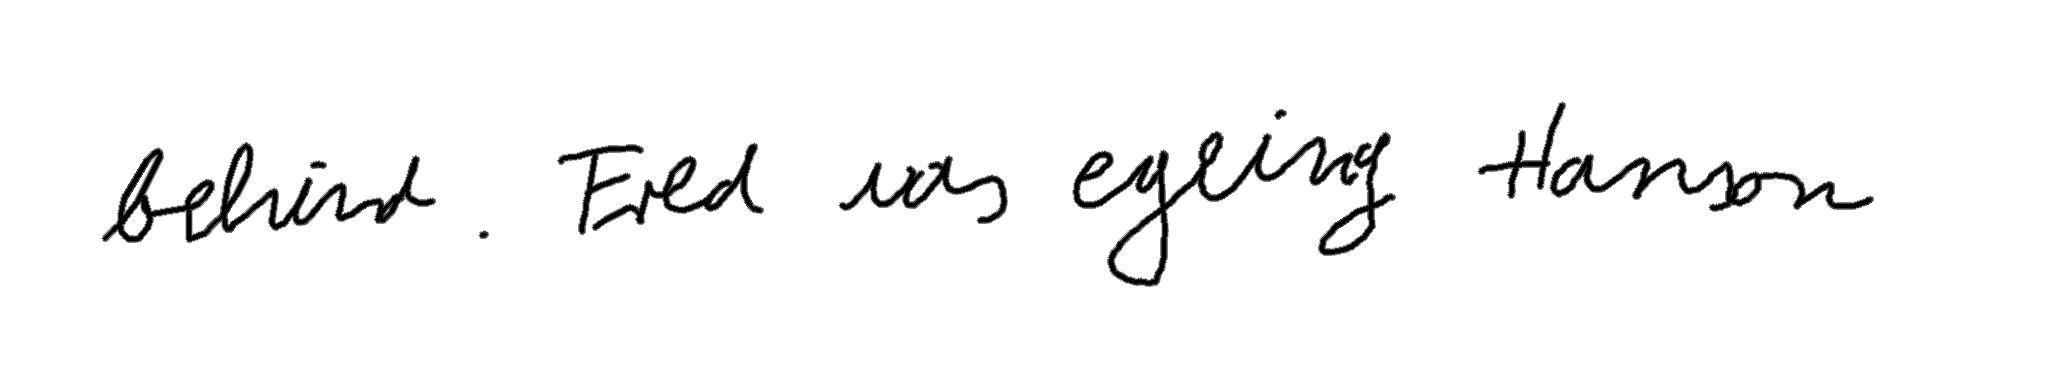 behind. Fred was eyeing Hanson